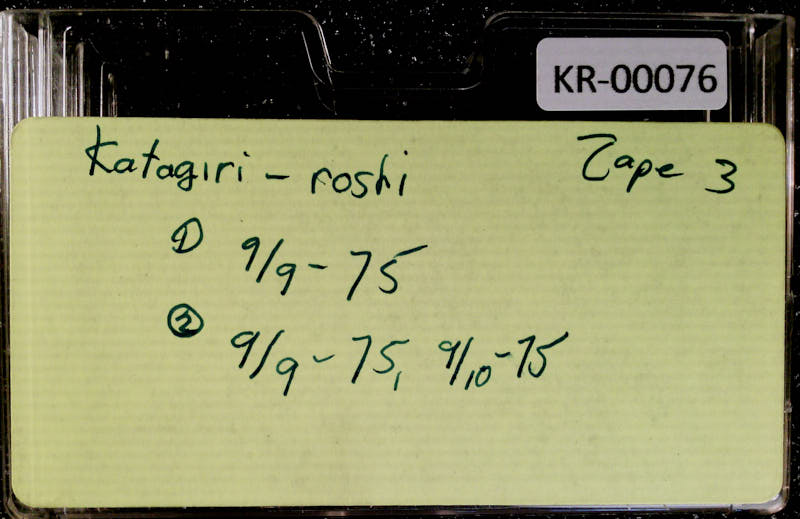 KR-00076
Katagiri - roshi Tape 3
① 9/9 - 75
② 9/9 - 75, 9/10 - 75